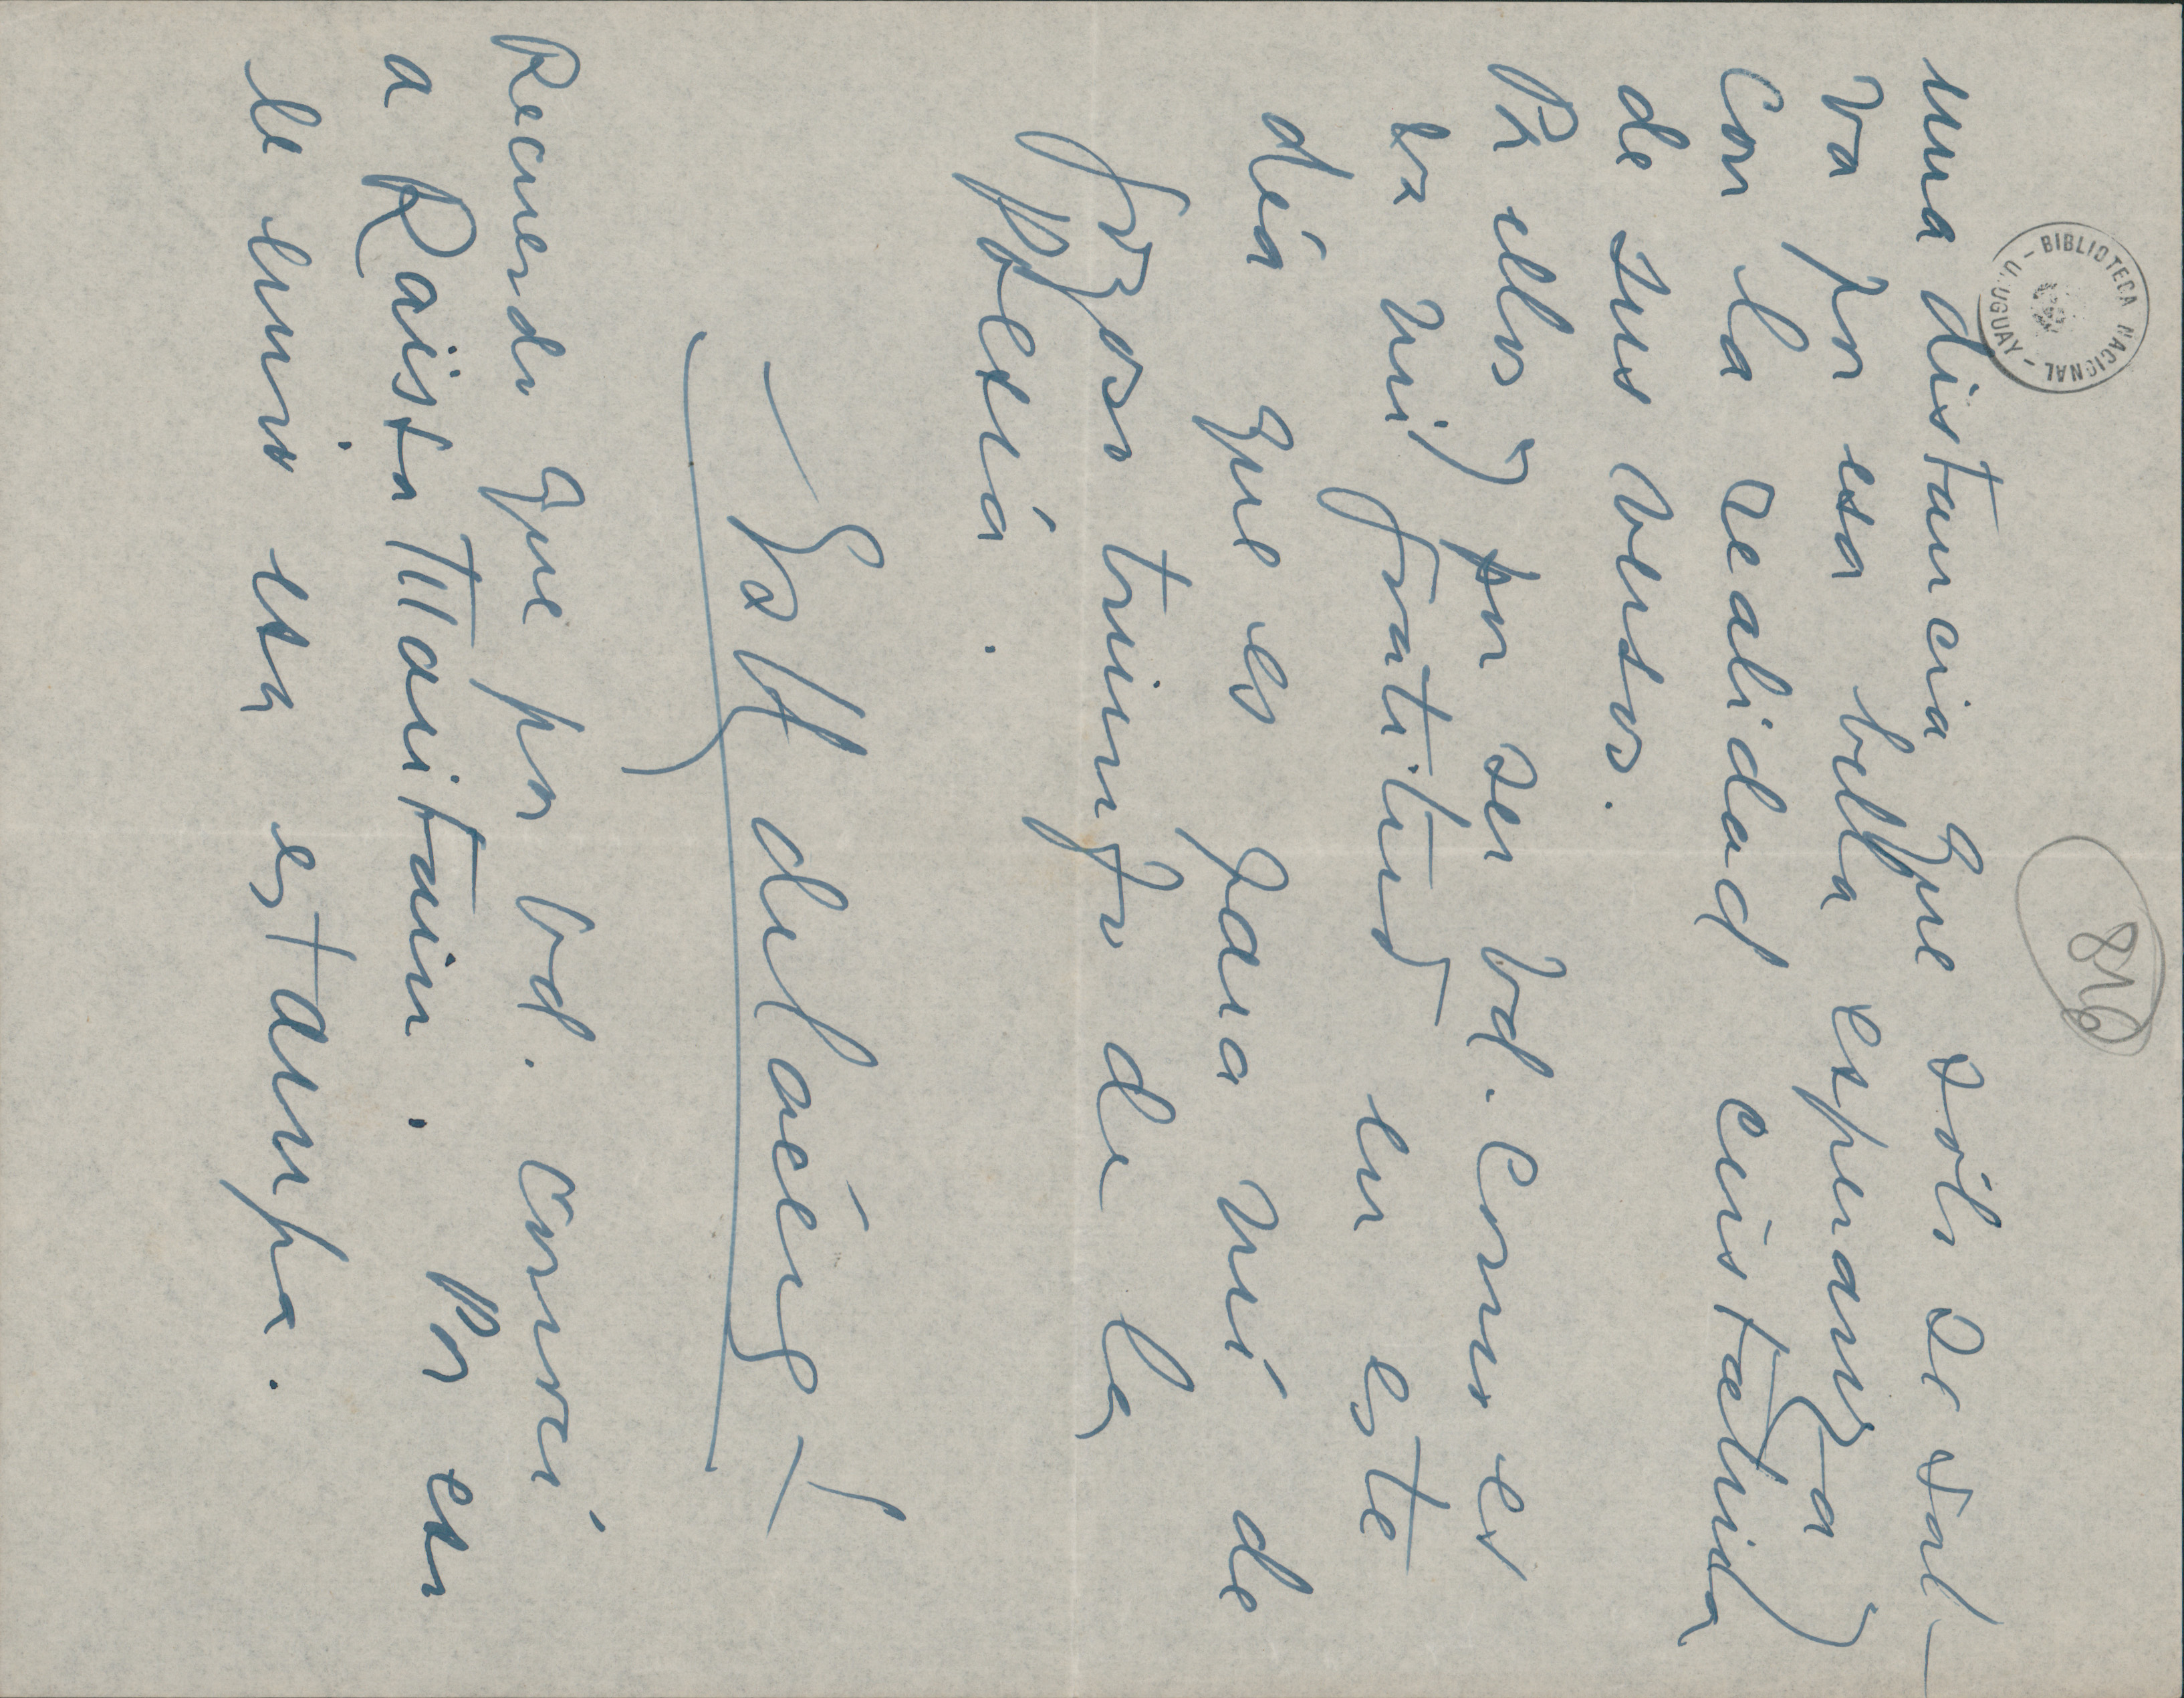 BIBLIOTECA NACIONAL - URUGUAY -
una distancia que sólo se sal-
va por esa bella esperanza
con la realidad cristalina
de sus versos.
Por ellos y por ser Vd. como es
va mi gratitud en este
día que es para mí de
gozoso triunfo de la
Poesía.
Recuerdo que por Vd. conocí
a Raissa Maritain. Por eso
le envío esta estampa.